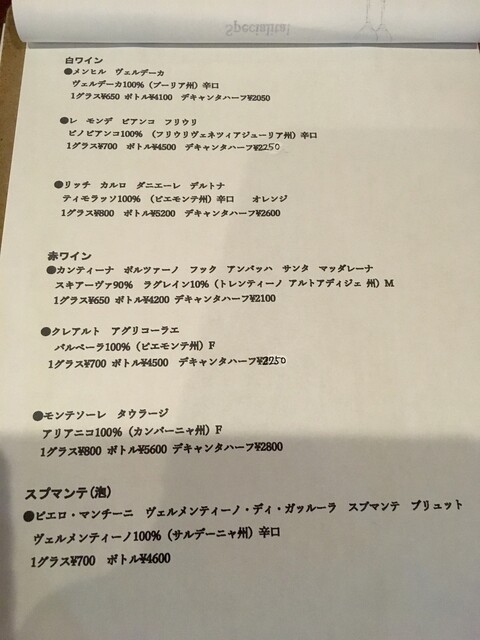 Specialita!
白ワイン
●メンヒル ヴェルデーカ
ヴェルデーカ100% (プーリア州) 辛口
1グラス¥650 ボトル¥4100 デキャンタハーフ¥2050
●レ モンデ ビアンコ フリウリ
ピノビアンコ100% (フリウリヴェネツィアジューリア州) 辛口
1グラス¥700 ボトル¥4500 デキャンタハーフ¥2250
●リッチ カルロ ダニエーレ デルトナ
ティモラッソ100% (ピエモンテ州) 辛口 オレンジ
1グラス¥800 ボトル¥5200 デキャンタハーフ¥2600
赤ワイン
●カンティーナ ボルツァーノ フック アンバッハ サンタ マッダレーナ
スキアーヴァ90% ラグレイン10% (トレンティーノ アルトアディジェ 州) M
1グラス¥650 ボトル¥4200 デキャンタハーフ¥2100
●クレアルト アグリコーラエ
バルベーラ100% (ピエモンテ州) F
1グラス¥700 ボトル¥4500 デキャンタハーフ¥2250
●モンテソーレ タウラージ
アリアニコ100% (カンパーニャ州) F
1グラス¥800 ボトル¥5600 デキャンタハーフ¥2800
スプマンテ(泡)
●ピエロ・マンチーニ ヴェルメンティーノ・ディ・ガッルーラ スプマンテ ブリュット
ヴェルメンティーノ100% (サルデーニャ州) 辛口
1グラス¥700 ボトル¥4600